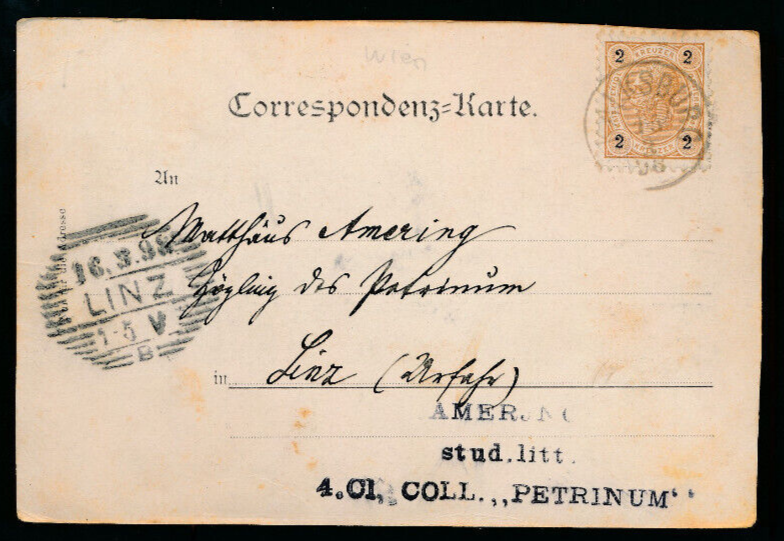 Wien
KREUZER
2 2
2 2
KREUZER
98
Correspondenz=Karte.
An
Matthäus Amering
16.3.98
LINZ
1-5 V
B
Zögling des Petrinum
in Linz (Urfahr)
AMERING
stud.litt.
4.Cl, COLL. „PETRINUM“